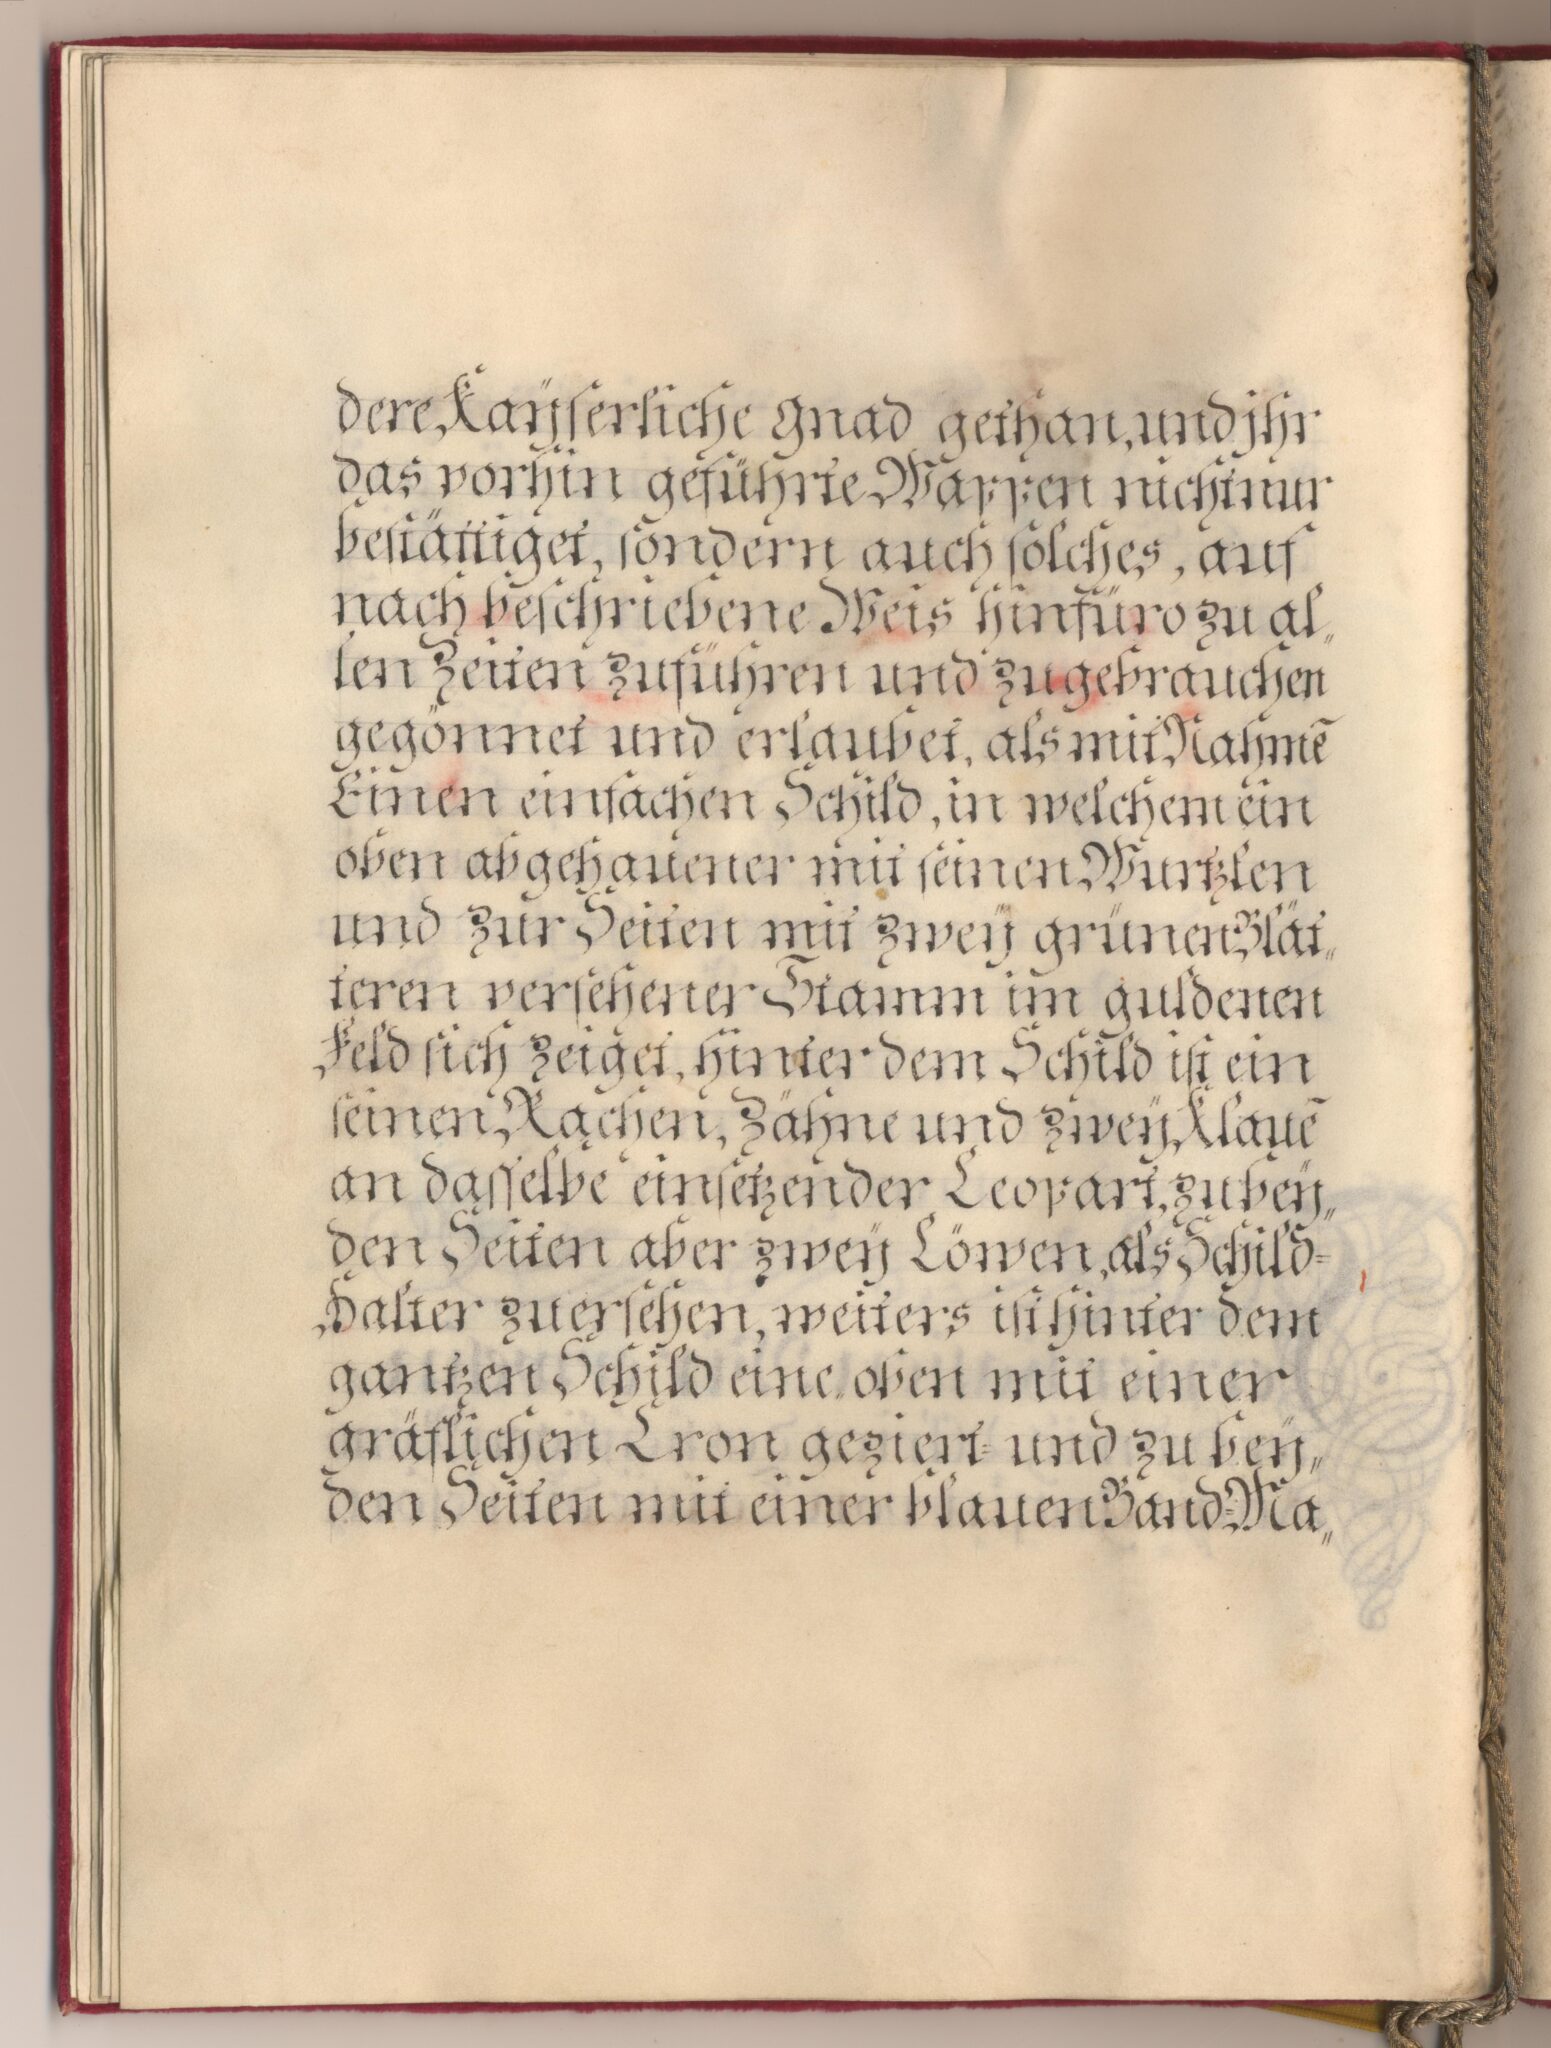 dere Kaÿserliche Gnad gethan, und jhr
das vorhin geführte Wappen nicht nur
bestättiget, sondern auch solches, auf
nach beschriebene Weis hinfüro zu al„
len Zeiten zuführen und zu gebrauchen
gegönnet und erlaubet, als mit Nahmē
Einen einfachen Schild, in welchem ein
oben abgehauener mit seinen Wurtzlen
und zur Seiten mit zweÿ grünen Blät„
teren versehener Stamm im guldenen
Feld sich zeiget, hinter dem Schild ist ein
seinen Rachen, Zähne und zweÿ Klauē
an dasselbe einsetzender Leopart, zu beÿ„
den Seiten aber zweÿ Löwen, als Schild=
Halter zuersehen, weiters ist hinter dem
gantzen Schild eine oben mit einer
gräflichen Cron geziert= und zu beÿ„
den Seiten mit einer blauen Band=Ma„